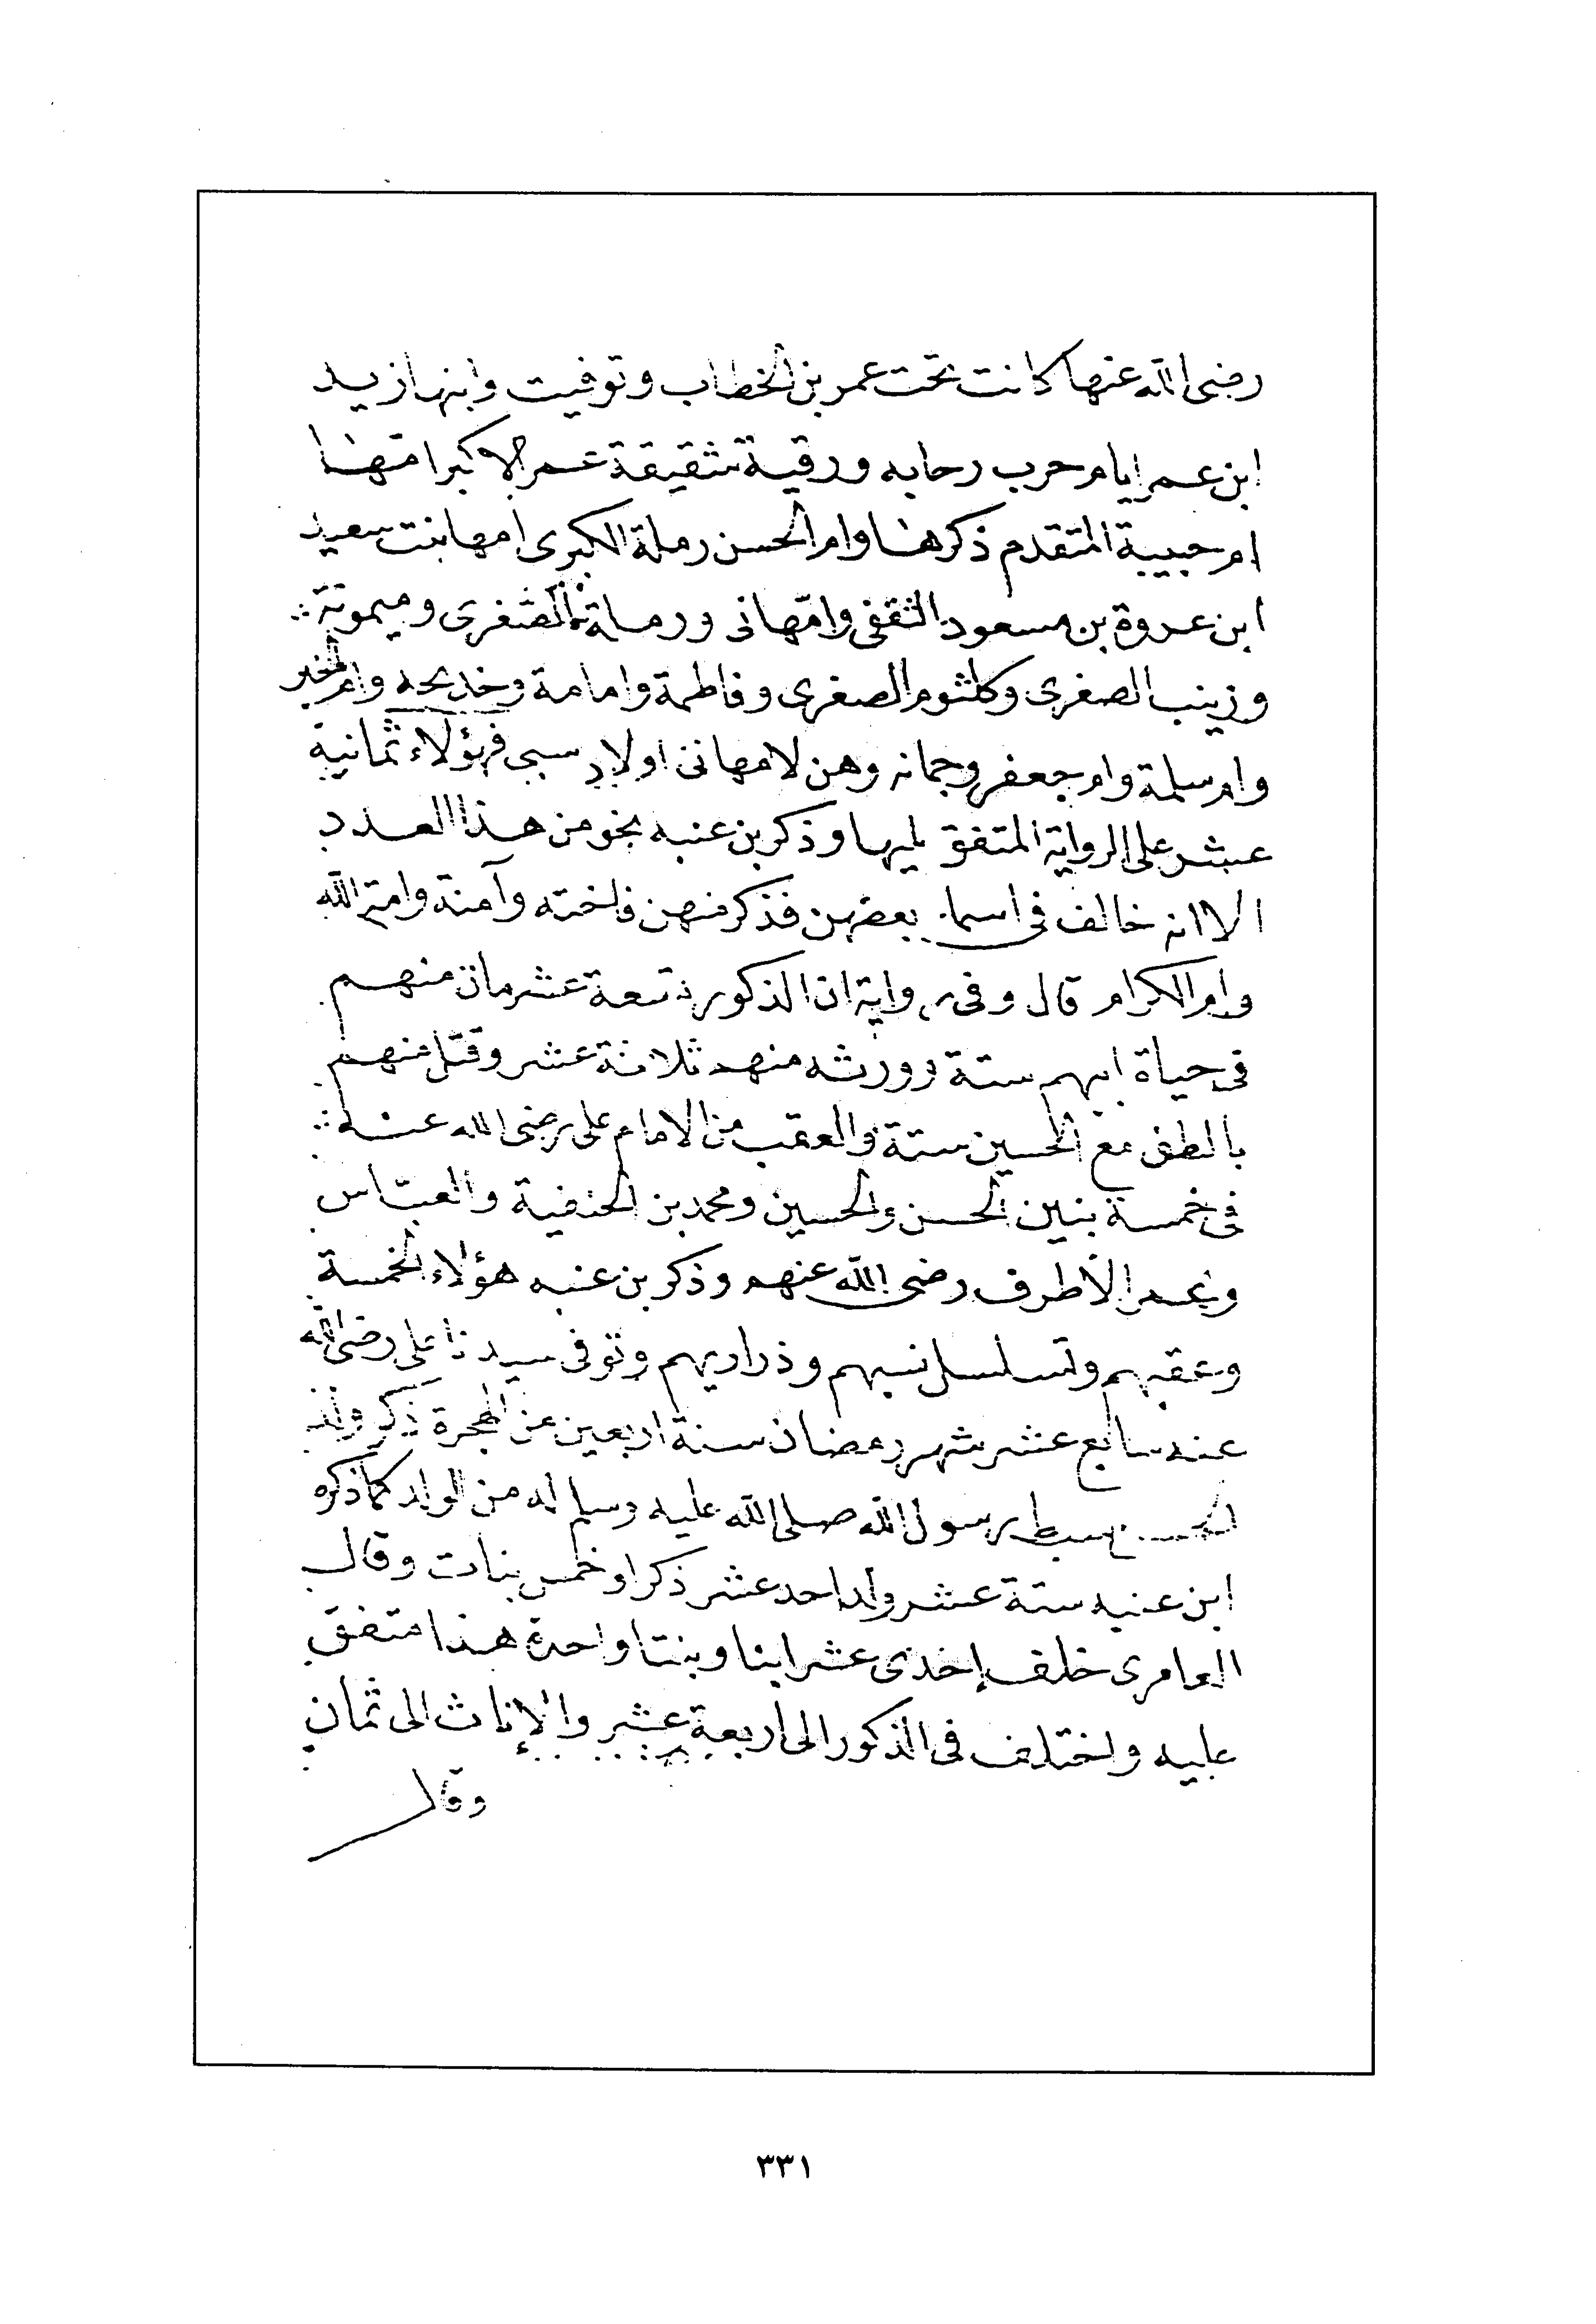 رضى الله عنها كانت تحت عمر بن الخطاب وتوفيت وابنها زيد
ابن عمر ايام حرب رحابه ورقية شقيقة عمر الاكبر امهما
ام حبيبة المتقدم ذكرها وام الحسن رملة الكبرى امها بنت سعيد
ابن عروة بن مسعود الثقفى وامهانى ورملة الصغرى وميمونة
وزينب الصغرى وكلثوم الصغرى وفاطمة وامامة وخديجه وام الخير
وام سلمة وام جعفر وجمانه وهن لامهات اولاد سبى فهؤلاء ثمانية
عشر على الرواية المتفق عليها وذكر بن عنبه نحو من هذا العدد
الا انه خالف فى اسماء بعضهن فذكر منهن فاخته وآمنة وامة الله
وام الكرام قال وفى رواية ان الذكور تسعة عشر مات منهم
فى حياة ابيهم ستة وورثه منهم ثلاثة عشر وقتل منهم
بالطف مع الحسين ستة والعقب من الامام على رضى الله عنه
فى خمسة بنين الحسن والحسين ومحمد بن الحنفية والعباس
وعمر الأطرف رضى الله عنهم وذكر بن عنبه هؤلاء الخمسة
وعقبهم وتسلسل نسبهم وذراريهم وتوفى سيدنا على رضى الله
عنه سابع عشر شهر رمضان سنة اربعين من الهجرة ذكر ولد
الحسن سبط رسول الله صلى الله عليه وسلم له من الولد كما ذكره
ابن عنبه ستة عشر ولد احد عشر ذكرا وخمس بنات وقال
العامرى خلف إحدى عشر ابنا وبنتا واحدة هذا متفق
عليه واختلف فى الذكور الى اربعة عشر والإناث الى ثمان
وقال
٣٣١